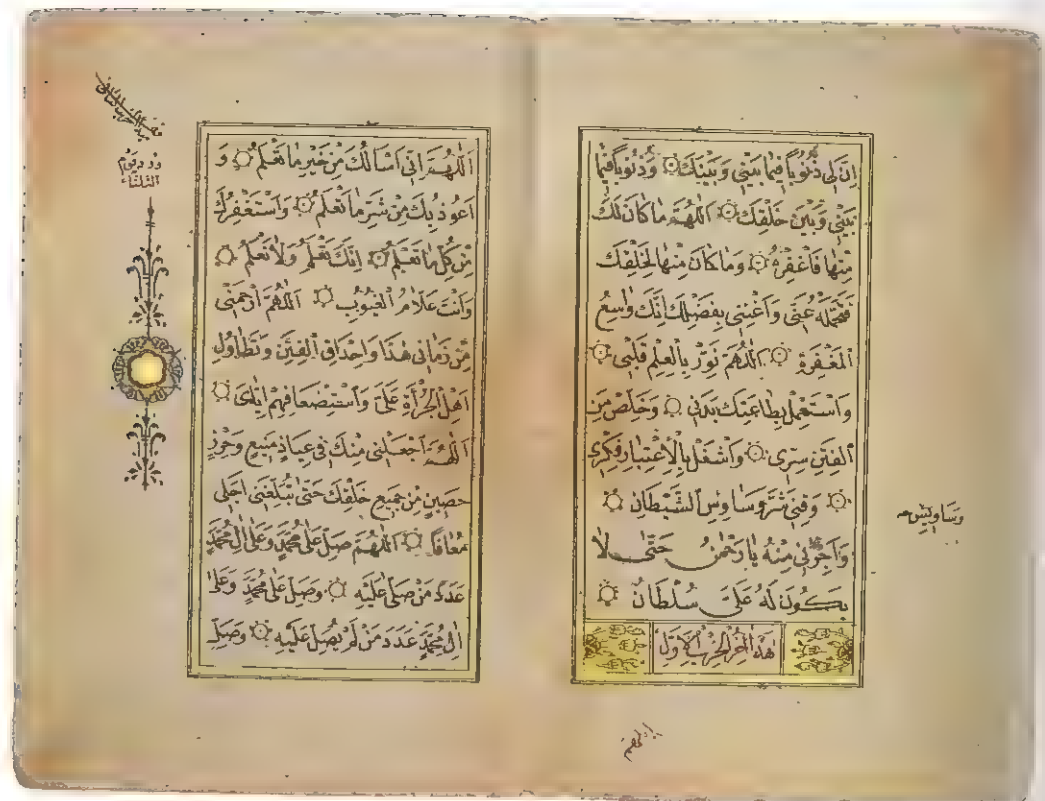 اِنَّ لِي ذُنُوبًا فِيمَا بَيْنِي وَبَيْنَكَ وَذُنُوبًا فِيمَا
بَيْنِي وَبَيْنَ خَلْقِكَ اَللّٰهُمَّ مَا كَانَ لَكَ
مِنْهَا فَاغْفِرْهُ وَمَا كَانَ مِنْهَا لِخَلْقِكَ
فَتَحَمَّلْهُ عَنِّي وَاَغْنِنِي بِفَضْلِكَ اِنَّكَ وَاسِعُ
الْمَغْفِرَةِ اَللّٰهُمَّ نَوِّرْ بِالْعِلْمِ قَلْبِي
وَاسْتَعْمِلْ بِطَاعَتِكَ بَدَنِي وَخَلِّصْ مِنَ
الْفِتَنِ سِرِّي وَاشْغَلْ بِالْاِعْتِبَارِ فِكْرِي
وَقِنِي شَرَّ وَسَاوِسِ الشَّيْطَانِ
وَاَجِرْنِي مِنْهُ يَا رَحْمٰنُ حَتّٰى لَا
يَكُونَ لَهُ عَلَيَّ سُلْطَانٌ
هٰذَا اٰخِرُ الْحِزْبِ الْاَوَّلِ
وَسَاوِيسِ
ورد يوم
الثلثاء
اَللّٰهُمَّ اِنِّي اَسْاَلُكَ مِنْ خَيْرِ مَا تَعْلَمُ وَ
اَعُوذُ بِكَ مِنْ شَرِّ مَا تَعْلَمُ وَاَسْتَغْفِرُكَ
مِنْ كُلِّ مَا تَعْلَمُ اِنَّكَ تَعْلَمُ وَلَا نَعْلَمُ
وَاَنْتَ عَلَّامُ الْغُيُوبِ اَللّٰهُمَّ ارْحَمْنِي
مِنْ زَمَانِي هٰذَا وَاِحْدَاقِ الْفِتَنِ وَتَطَاوُلِ
اَهْلِ الْجُرْأَةِ عَلَيَّ وَاسْتِضْعَافِهِمْ اِيَّايَ
اَللّٰهُمَّ اجْعَلْنِي مِنْكَ فِي عِيَاذٍ مَنِيعٍ وَحِرْزٍ
حَصِينٍ مِنْ جَمِيعِ خَلْقِكَ حَتّٰى تُبَلِّغَنِي اَجَلِي
مُعَافًا اَللّٰهُمَّ صَلِّ عَلٰى مُحَمَّدٍ وَعَلٰى اٰلِ مُحَمَّدٍ
عَدَدَ مَنْ صَلّٰى عَلَيْهِ وَصَلِّ عَلٰى مُحَمَّدٍ وَعَلٰى
اٰلِ مُحَمَّدٍ عَدَدَ مَنْ لَمْ يُصَلِّ عَلَيْهِ وَصَلِّ